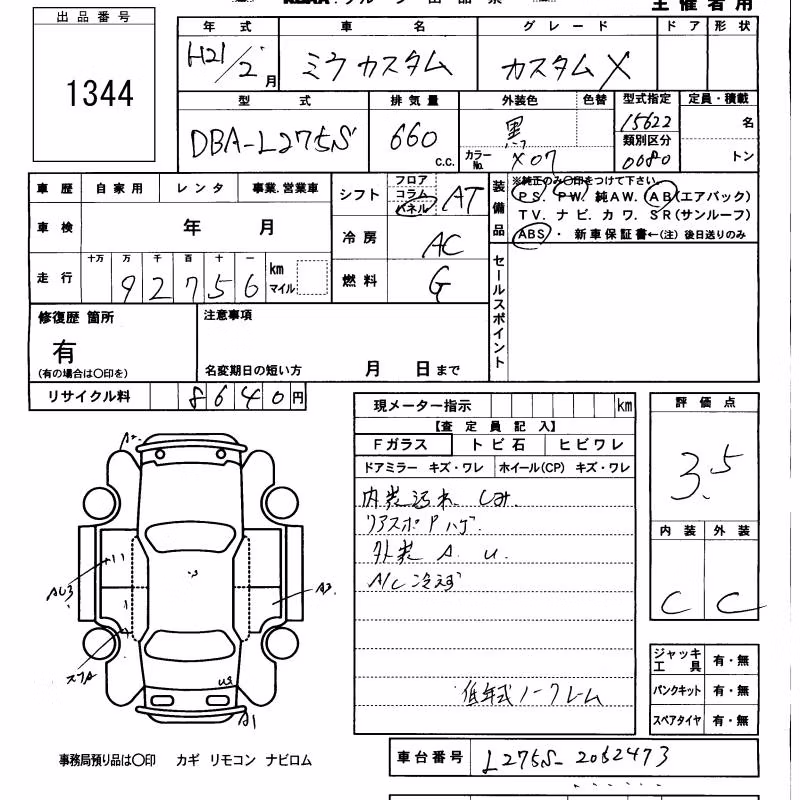 主催者用
出品番号
1344
年式 車名 グレード ドア 形状
H21/2月 ミラカスタム カスタムX
型式 排気量 外装色 色替 型式指定 定員・積載
DBA-L275S 660 c.c. 黒 15622 名
カラーNo. X07 類別区分 0080 トン
車歴 自家用 レンタ 事業.営業車
車検 年 月
走行 十万 万 千 百 十 一
92756 km マイル
シフト フロア コラム パネル AT
冷房 AC
燃料 G
装備品 ※純正のみ○印をつけて下さい。
PS. PW. 純AW. AB(エアバック)
TV. ナビ. カワ. SR(サンルーフ)
ABS・新車保証書←(注)後日送りのみ
セールスポイント
修復歴 箇所
有
(有の場合は○印を)
注意事項
名変期日の短い方 月 日まで
リサイクル料 8640円
現メーター指示 km
【査定員記入】
Fガラス トビ石 ヒビワレ
ドアミラー キズ・ワレ ホイール(CP) キズ・ワレ
内装汚れ しみ.
リアスポPハゲ.
外装 A. U.
A/C冷えず
低年式ノークレーム
評価点
3.5
内装 外装
C C
ジャッキ工具 有・無
パンクキット 有・無
スペアタイヤ 有・無
A3
U3
A1
事務局預り品は○印 カギ リモコン ナビロム
車台番号 L275S-2052473